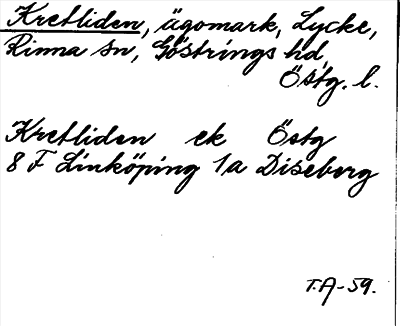 Kretliden, ägomark, Lycke,
Rinna sn, Göstrings hd,
Östg. l.
Kretliden ek Östg
8 F Linköping 1a Diseberg
T.A-59.